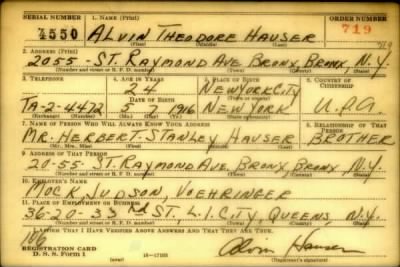 SERIAL NUMBER 1. NAME (Print) ORDER NUMBER
4550 ALVIN THEODORE HAUSER 719
(First) (Middle) (Last)
2. ADDRESS (Print) 719
2055 - ST. RAYMOND AVE BRONX, BRONX N.Y.
(Number and street or R. F. D. number) (Town) (County) (State)
3. TELEPHONE 4. AGE IN YEARS 5. PLACE OF BIRTH 6. COUNTRY OF CITIZENSHIP
24 NEW YORK CITY
TA-2-4472 DATE OF BIRTH
5 7 1916 NEW YORK U.S.A.
(Exchange) (Number) (Mo.) (Day) (Yr.) (State or country)
7. NAME OF PERSON WHO WILL ALWAYS KNOW YOUR ADDRESS 8. RELATIONSHIP OF THAT PERSON
MR. HERBERT STANLEY HAUSER BROTHER
(Mr., Mrs., Miss) (First) (Middle) (Last)
9. ADDRESS OF THAT PERSON
20-55 - ST. RAYMOND AVE, BRONX, BRONX, N.Y.
(Number and street or R. F. D. number) (Town) (County) (State)
10. EMPLOYER'S NAME
MOCK, JUDSON, VOEHRINGER
11. PLACE OF EMPLOYMENT OR BUSINESS
36-20-33 rd ST., L.I. CITY, QUEENS, N.Y.
(Number and street or R. F. D. number) (Town) (County) (State)
I AFFIRM THAT I HAVE VERIFIED ABOVE ANSWERS AND THAT THEY ARE TRUE.
REGISTRATION CARD
D. S. S. Form 1 (over) 16-17105 Alvin Hauser